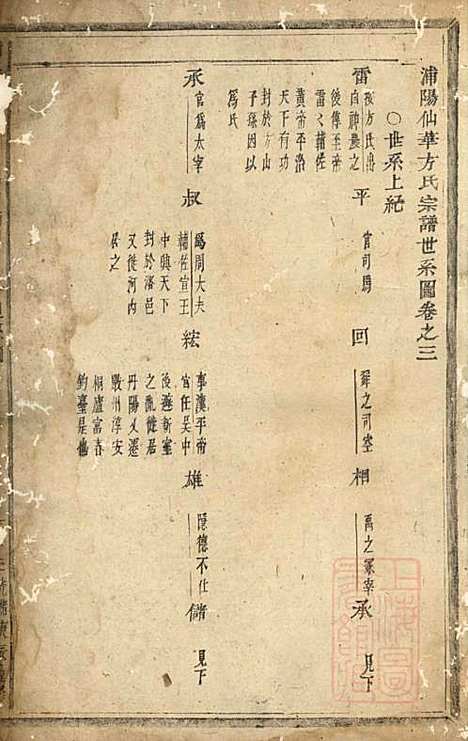 浦陽仙華方氏宗譜世系圖卷之三
○世系上紀
雷
按方氏出
自神農之
後傳至帝
雷之孫佐
黃帝平治
天下有功
封於方山
子孫因以
爲氏
平
官司馬
回
舜之司空
相
禹之冢宰
承
見下
承
官爲太宰
叔
爲周大夫
輔佐宣王
中興天下
封於洛邑
又徙河內
居之
紘
事漢平帝
官任吳中
後避新室
之亂徙居
丹陽又遷
嚴州淳安
桐廬富春
釣臺是也
雄
隱德不仕
儲
見下
上海圖